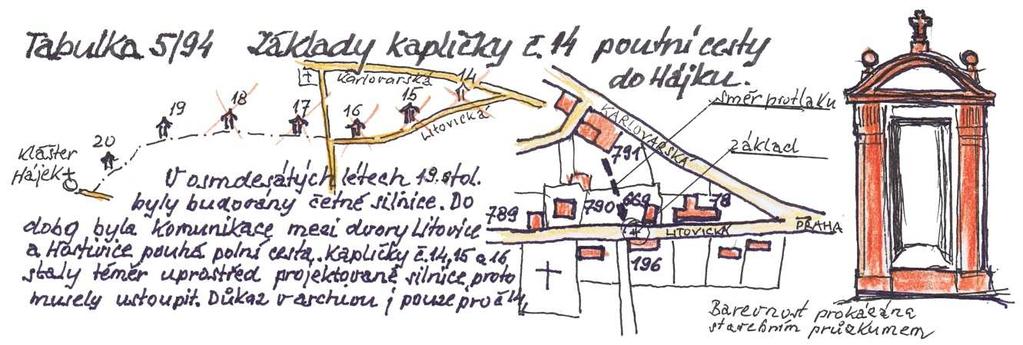 Tabulka 5/94 Základy kapličky č.14 poutní cesty
do Hájku.
Karlovarská
14
15
16
17
18
19
20
Litovická
Klášter
Hájek
V osmdesátých létech 19. stol.
byly budovány četné silnice. Do
doby byla komunikace mezi dvory Litovice
a Hostivice pouhá polní cesta. Kapličky č.14, 15 a 16
staly téměř uprostřed projektované silnice, proto
musely ustoupit. Důkaz v archivu j pouze pro č 14.
směr protlaku
KARLOVARSKÁ
základ
791
789
790
669
78
LITOVICKÁ
PRAHA
196
Barevnost prokázána
stavebním průzkumem